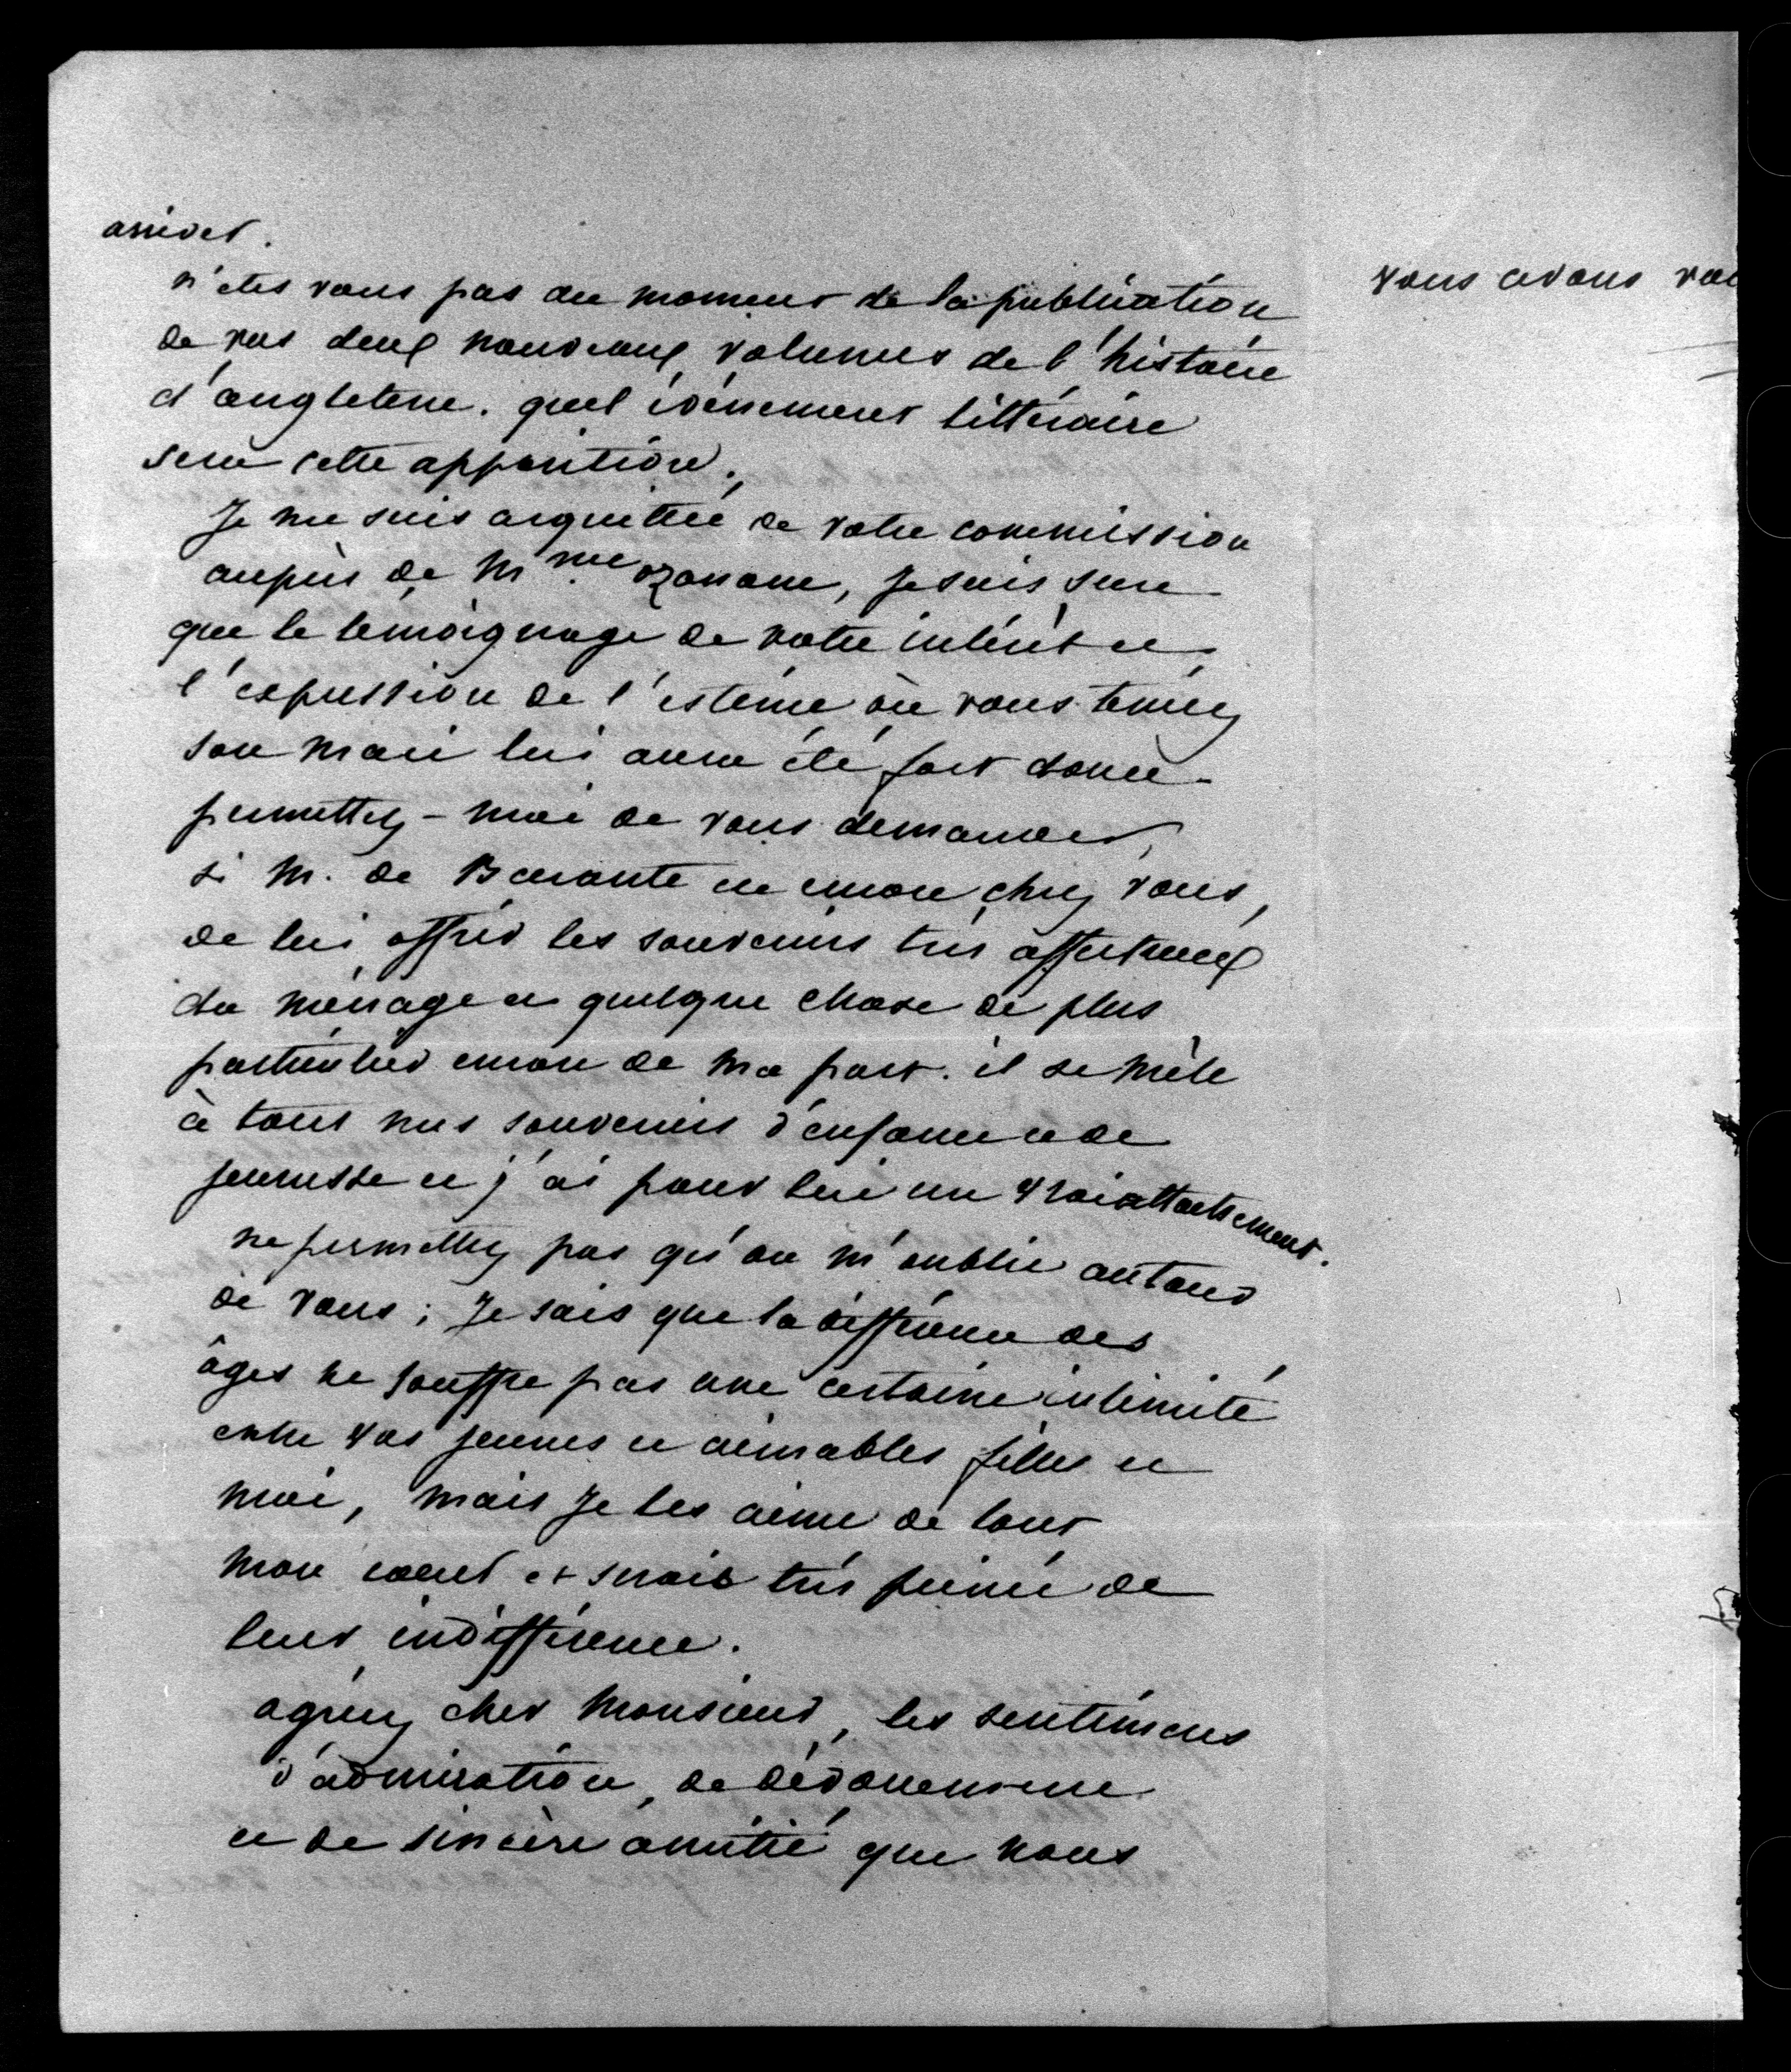 arriver.
n'etes vous pas au moment de la publication
de vos deux nouveaux volumes de l'histoire
d'angleterre. quel évènement littéraire
sera cette apparition.
Je me suis acquittée de votre commission
auprès de Mme ozanam, je suis sure
que le temoignage de votre intérêt et
l'expression de l'estime où vous teniez
son mari lui aura été fort douce.
permettez-moi de vous demander,
si M. de Barante est encore chez vous,
de lui offrir les souvenirs très affectueux
du ménage et quelque chose de plus
particulier encore de ma part. il se mêle
à tous mes souvenirs d'enfance et de
jeunesse et j'ai pour lui un vrai attachement.
ne permettez pas qu'on m'oublie autour
de vous; Je sais que la différence des
âges ne souffre pas une certaine intimité
entre vos jeunes et aimables filles et
moi, mais Je les aime de tout
mon coeur et serais très peinée de
leur indifférence.
agréez cher Monsieur, les sentimens
d'admiration, de dévouement
et de sincère amitié que nous
vous avons